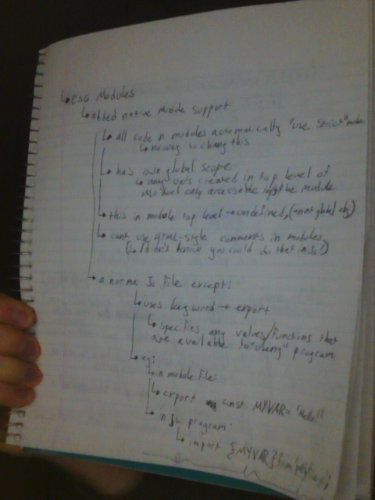 ↳ ES6 Modules
↳ added native module support
↳ all code in modules automatically "use strict" mode
↳ no way to change this
↳ has own global scope
↳ vars created in top level of module only accessable the module
↳ this in module top level → undefined, (not global obj)
↳ cant use HTML-style comments in modules
↳ ( didn't know you could do that in JS!)
↳ a normal Js file except:
↳ uses keyword → export
↳ specifies any values/functions that are available to "client" program
↳ eg:
↳ in module file:
↳ export const MYVAR = "Hello";
↳ in Js program:
↳ import {MYVAR} from